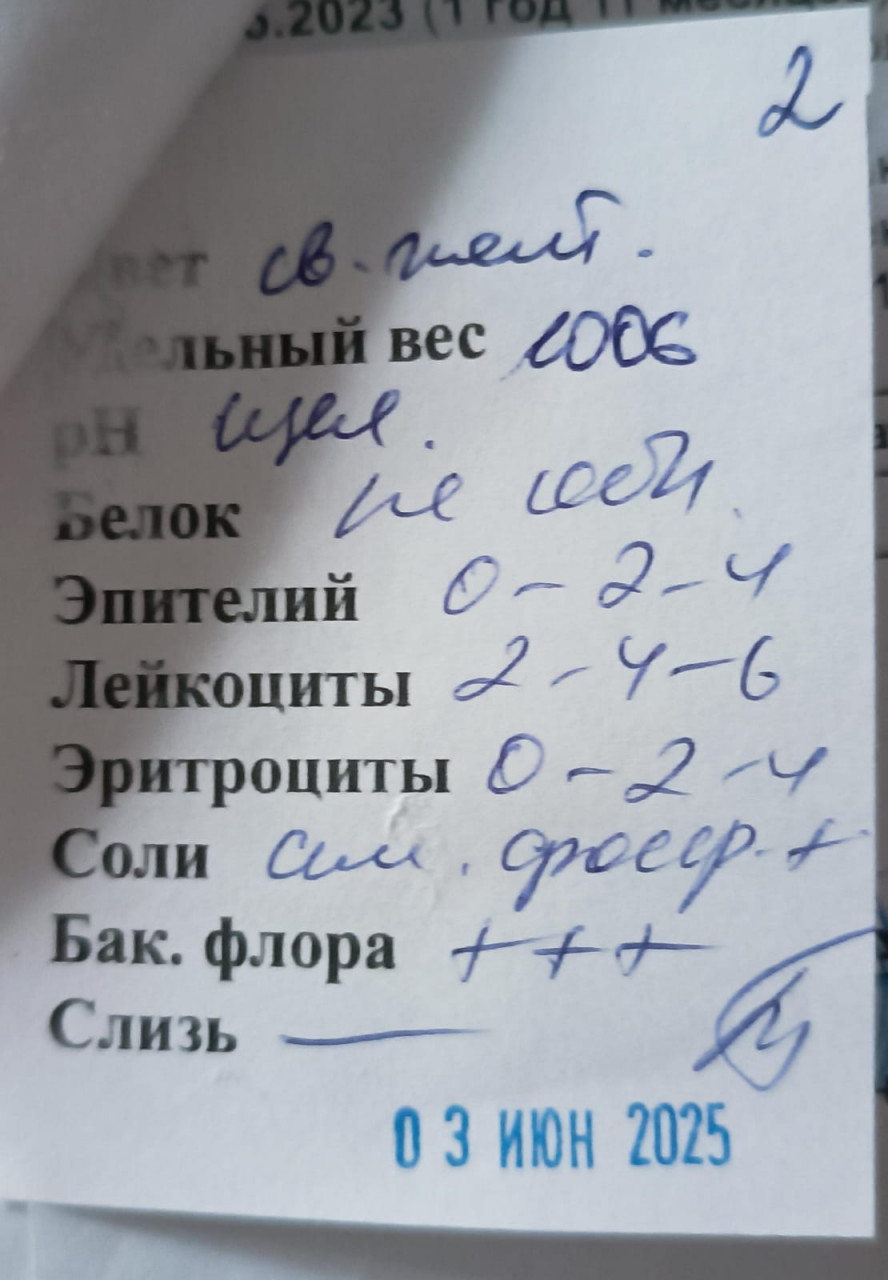 .2023 (1 год 11 месяц
2
вет св. желт.
Удельный вес 1006
pH щел.
Белок не
Эпителий 0 - 2 - 4
Лейкоциты 2 - 4 - 6
Эритроциты 0 - 2 - 4
Соли ам. фосф. +
Бак. флора + + +
Слизь —
03 ИЮН 2025